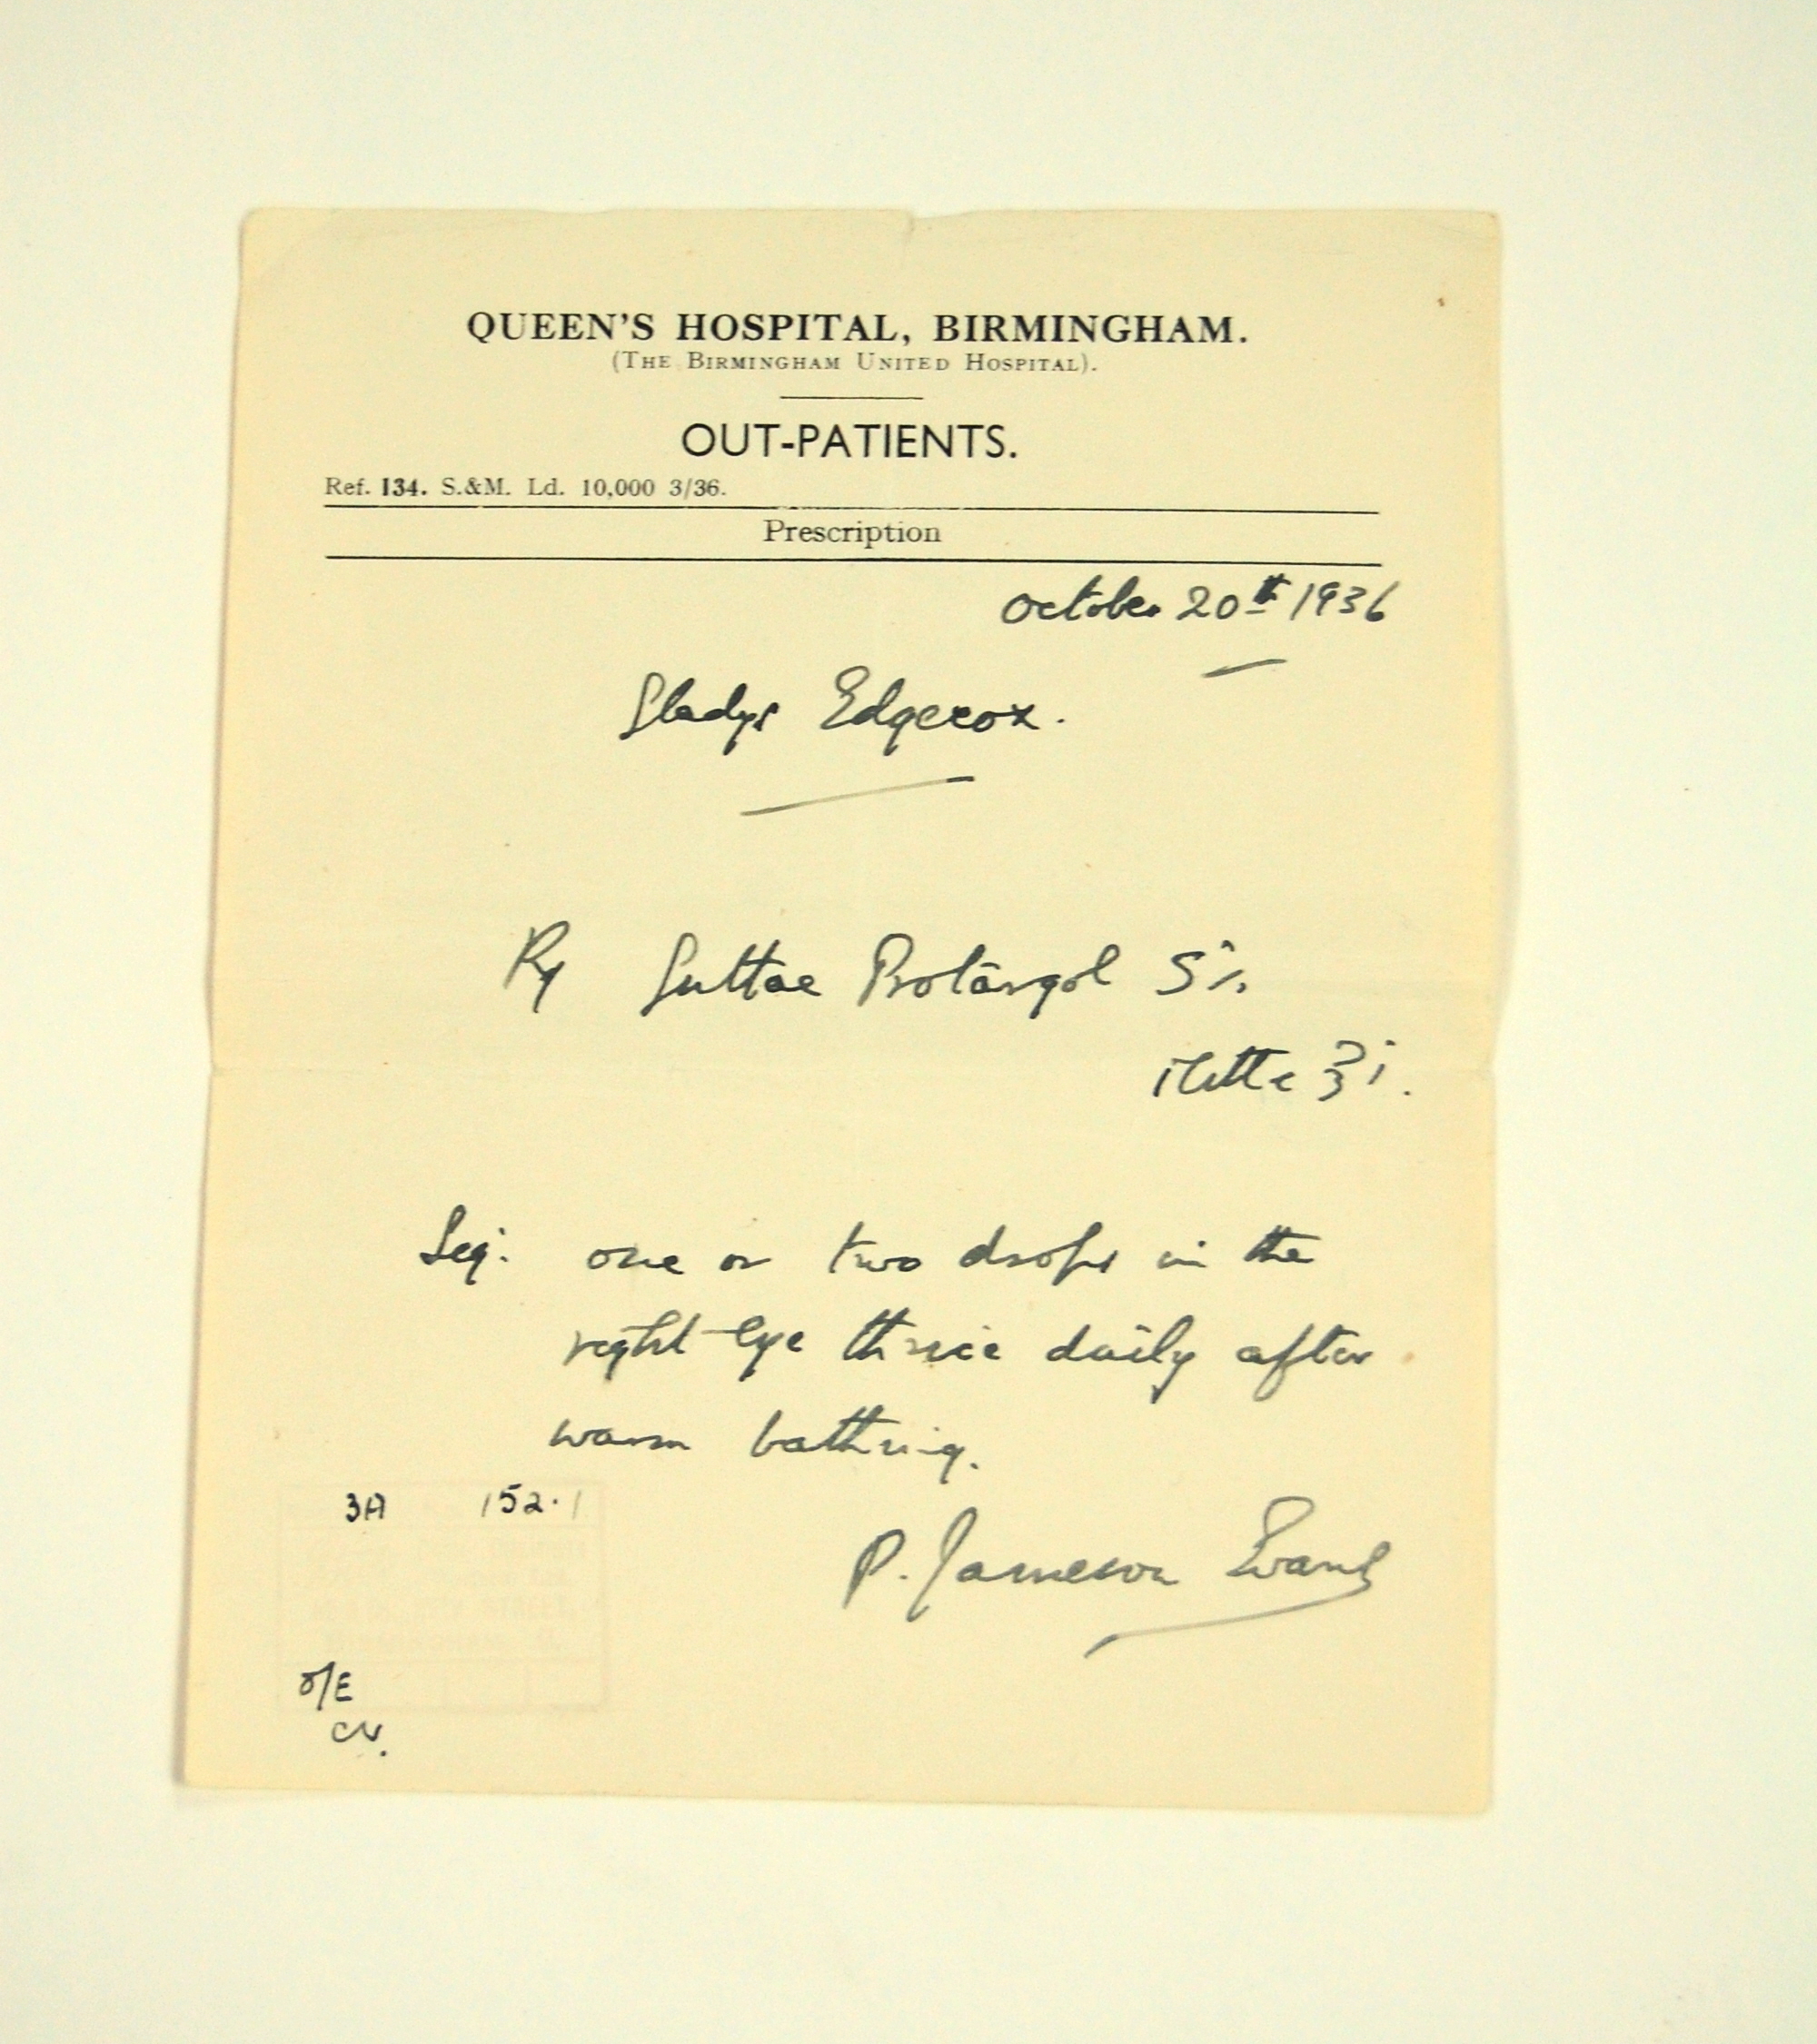 QUEEN'S HOSPITAL, BIRMINGHAM.
(THE BIRMINGHAM UNITED HOSPITAL).
OUT-PATIENTS.
Ref. 134. S.&M. Ld. 10,000 3/36.
Prescription
October 20th 1936
Gladys Edgecox.
Rx Guttae Protargol 5%.
Mitte ʒi.
Sig: one or two drops in the
right eye thrice daily after
warm bathing.
3A 152.1
P. Jameson Evans
O/E
CV.